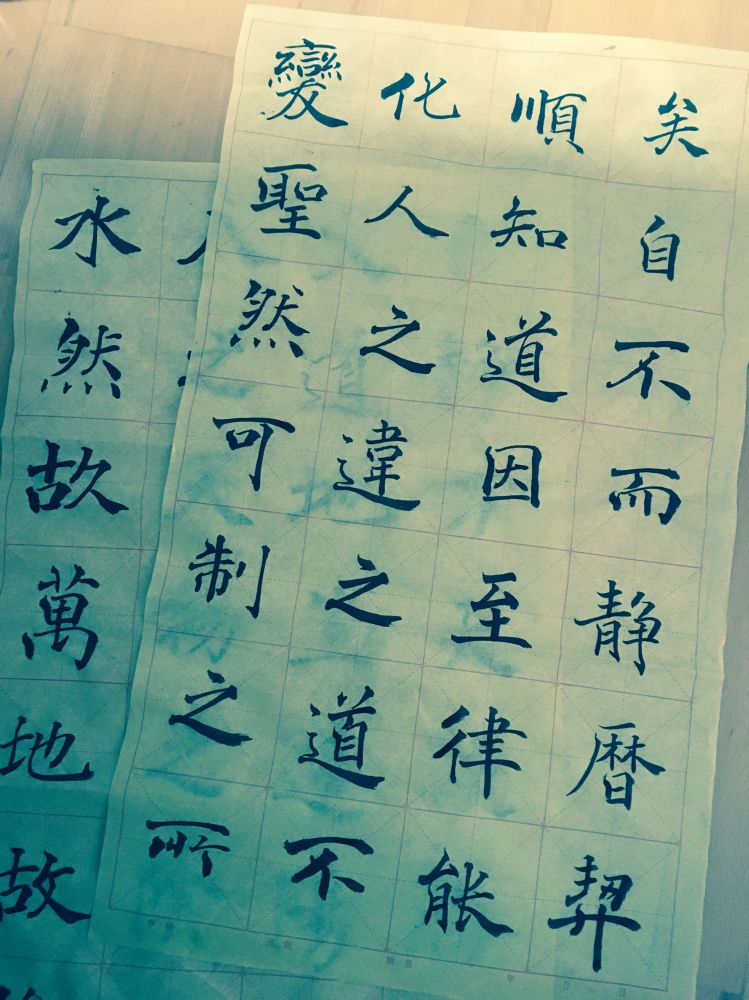 變化順矣
聖人知自
然之道不
可違因而
制之至静
之道律暦
所不能契
姓名 年 月 日
水
然
故
萬
地
故